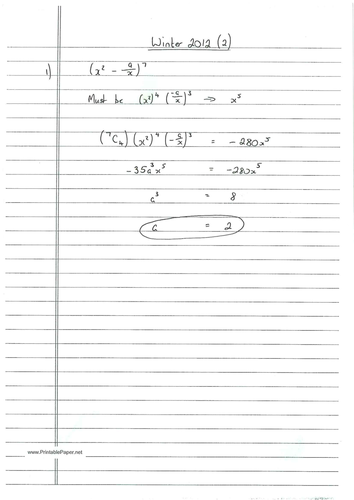 Winter 2012 (2)
1) (x² - a/x)⁷
Must be (x²)⁴ (-a/x)³ ⇒ x⁵
(⁷C₄) (x²)⁴ (-a/x)³ = -280x⁵
-35a³x⁵ = -280x⁵
a³ = 8
a = 2
www.PrintablePaper.net